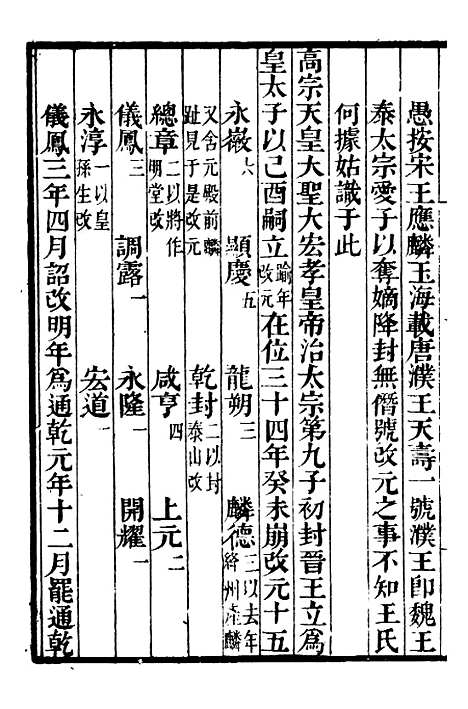 愚按宋王應麟玉海載唐濮王天壽一號濮王卽魏王
泰太宗愛子以奪嫡降封無僭號改元之事不知王氏
何據姑識于此
高宗天皇大聖大宏孝皇帝治太宗第九子初封晉王立爲
皇太子以己酉嗣立踰年改元在位三十四年癸未崩改元十五
永徽六 顯慶五 龍朔三 麟德二以去年絳州產麟
又含元殿前麟趾見于是改元 乾封二以封泰山改
總章二以將作明堂改 咸亨四 上元二
儀鳳三 調露一 永隆一 開耀一
永淳一以皇孫生改 宏道一
儀鳳三年四月詔改明年爲通乾元年十二月罷通乾